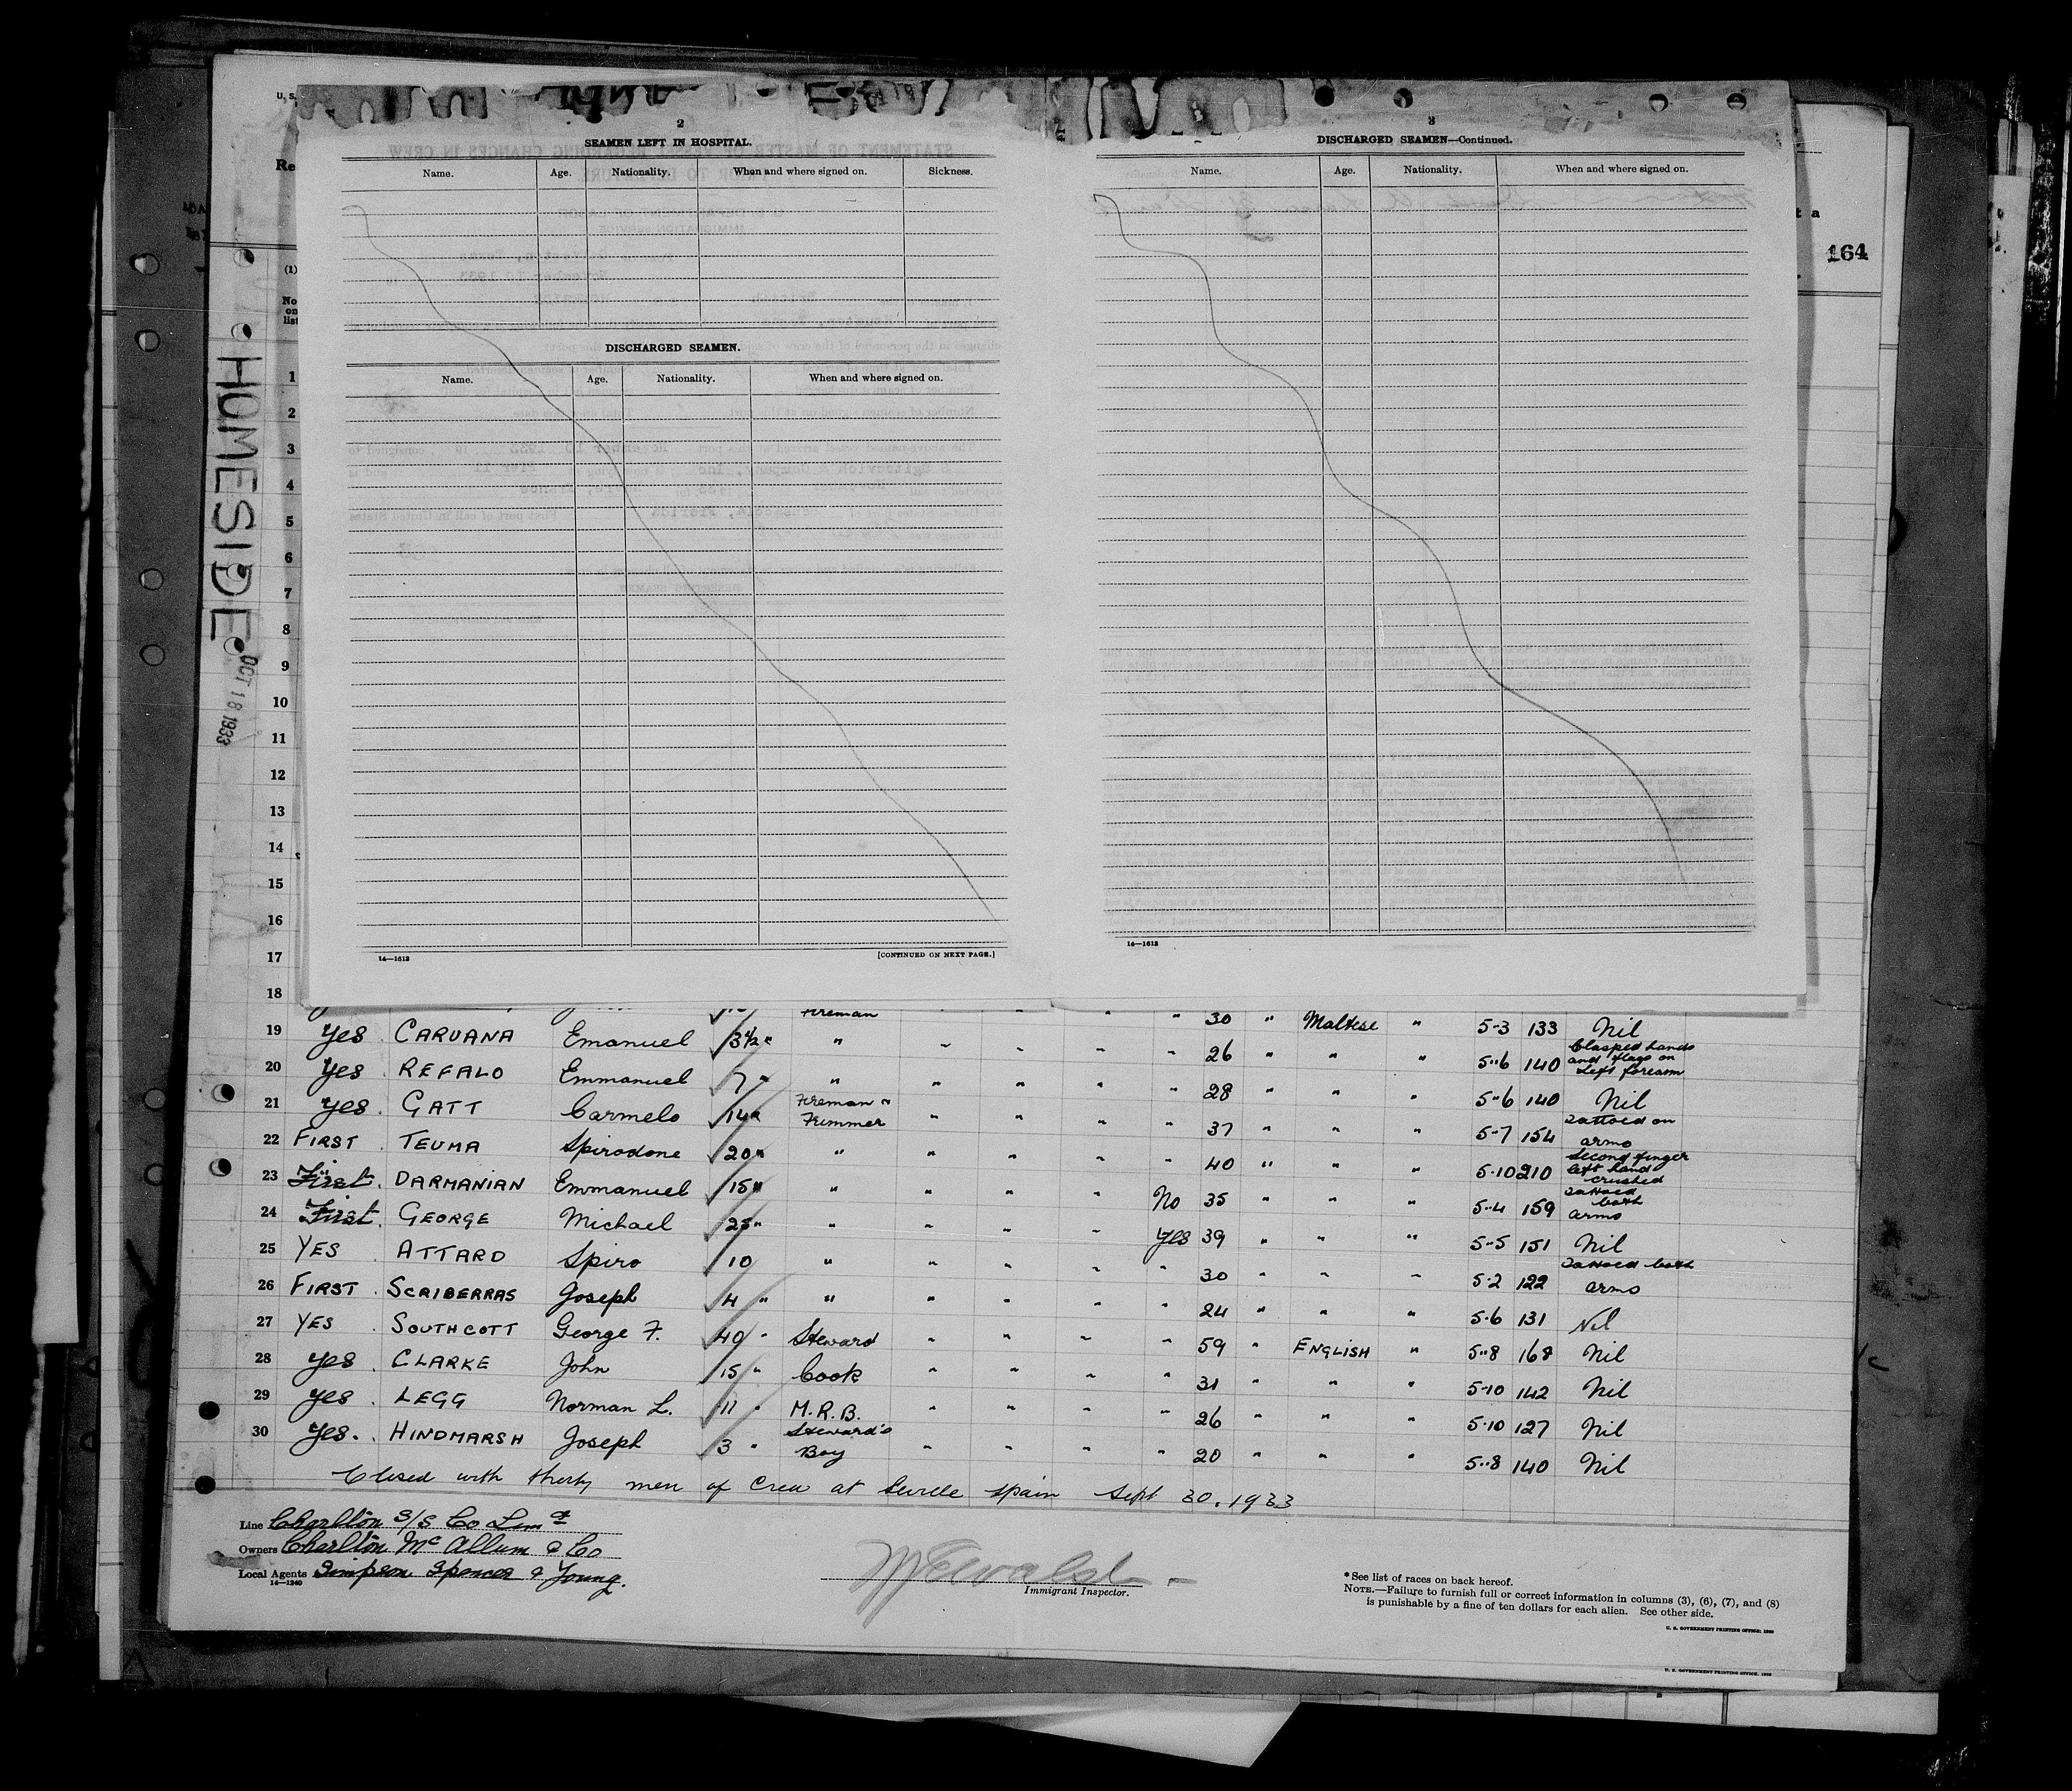 U. S.
Re
(1)
No
on
list
164
2
SEAMEN LEFT IN HOSPITAL.
Name. Age. Nationality. When and where signed on. Sickness.
DISCHARGED SEAMEN.
Name. Age. Nationality. When and where signed on.
14—1613 [CONTINUED ON NEXT PAGE.]
3
DISCHARGED SEAMEN—Continued.
Name. Age. Nationality. When and where signed on.
14—1613
HOMESIDE
OCT 18 1933
1
2
3
4
5
6
7
8
9
10
11
12
13
14
15
16
17
18 Fireman " " " " 30 " Maltese " 5-3 133 Nil
19 Yes CARUANA Emanuel 3½ " " " " " " 26 " " " 5-6 140 Clasped hands and flags on Left forearm
20 Yes REFALO Emmanuel 7 " " " " " " 28 " " " 5-6 140 Nil
21 Yes. GATT Carmelo 14 " Fireman & Trimmer " " " " 37 " " " 5-7 154 Tattoed on arms
22 FIRST TEUMA Spirodone 20 " " " " " " 40 " " " 5-10 210 Second finger left hand crushed
23 First. DARMANIAN Emmanuel 15 " " " " " No 35 " " " 5-4 159 Tattoed both arms
24 First. GEORGE Michael 25 " " " " " Yes 39 " " " 5-5 151 Nil
25 YES ATTARD Spiro 10 " " " " " 30 " " " 5-2 122 Tattoed both arms
26 FIRST SCRIBERRAS Joseph 4 " " " " " " 24 " " " 5-6 131 Nil
27 YES SOUTHCOTT George F. 40 " Steward " " " " 59 " ENGLISH " 5-8 168 Nil
28 Yes CLARKE John 15 " Cook " " " " 31 " " " 5-10 142 Nil
29 Yes LEGG Norman L. 11 " M.R.B. " " " " 26 " " " 5-10 127 Nil
30 Yes. HINDMARSH Joseph 3 " Steward's Boy " " " " 20 " " " 5-8 140 Nil
Closed with thirty men of Crew at Seville Spain Sept 30. 1933
Line Charlton S/S Co Lmd
Owners Charlton Mc Allum & Co
Local Agents Simpson Spencer & Young.
14—1240
Immigrant Inspector.
* See list of races on back hereof.
NOTE.—Failure to furnish full or correct information in columns (3), (6), (7), and (8)
is punishable by a fine of ten dollars for each alien. See other side.
U. S. GOVERNMENT PRINTING OFFICE:
U. S. GOVERNMENT PRINTING OFFICE: